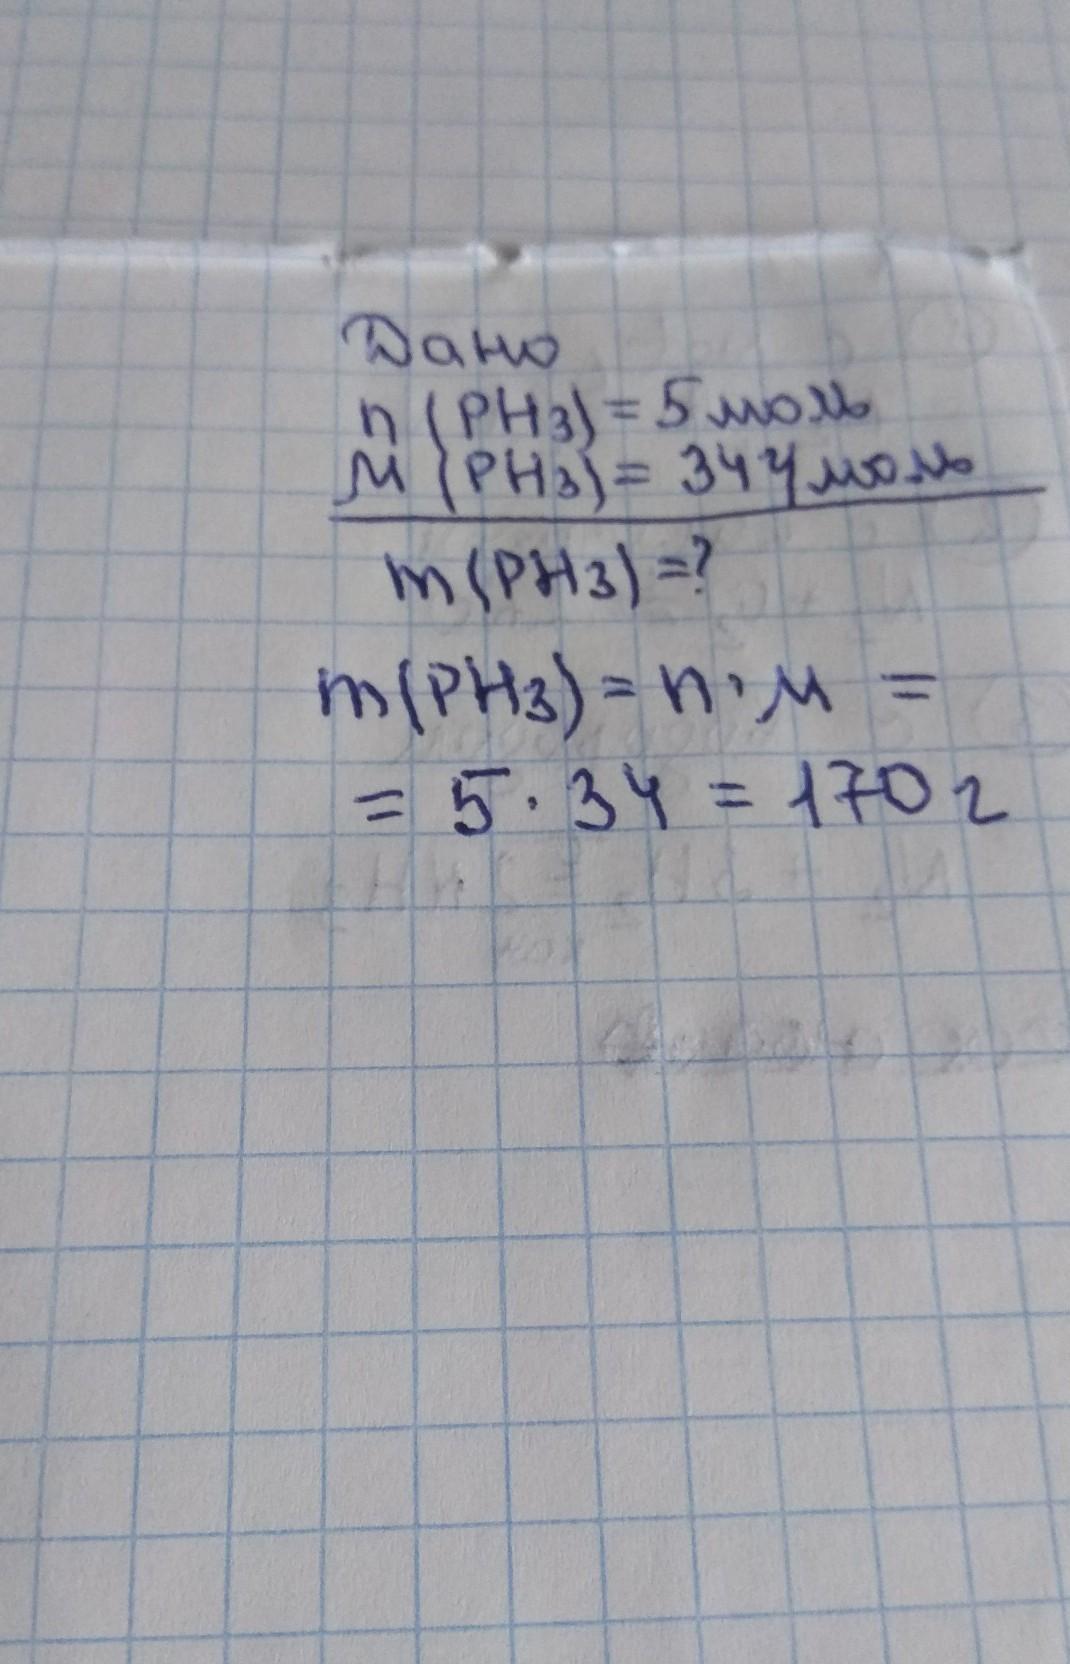 Дано
n (PH3) = 5 моль
M (PH3) = 34 г/моль
m (PH3) = ?
m (PH3) = n · M =
= 5 · 34 = 170 г